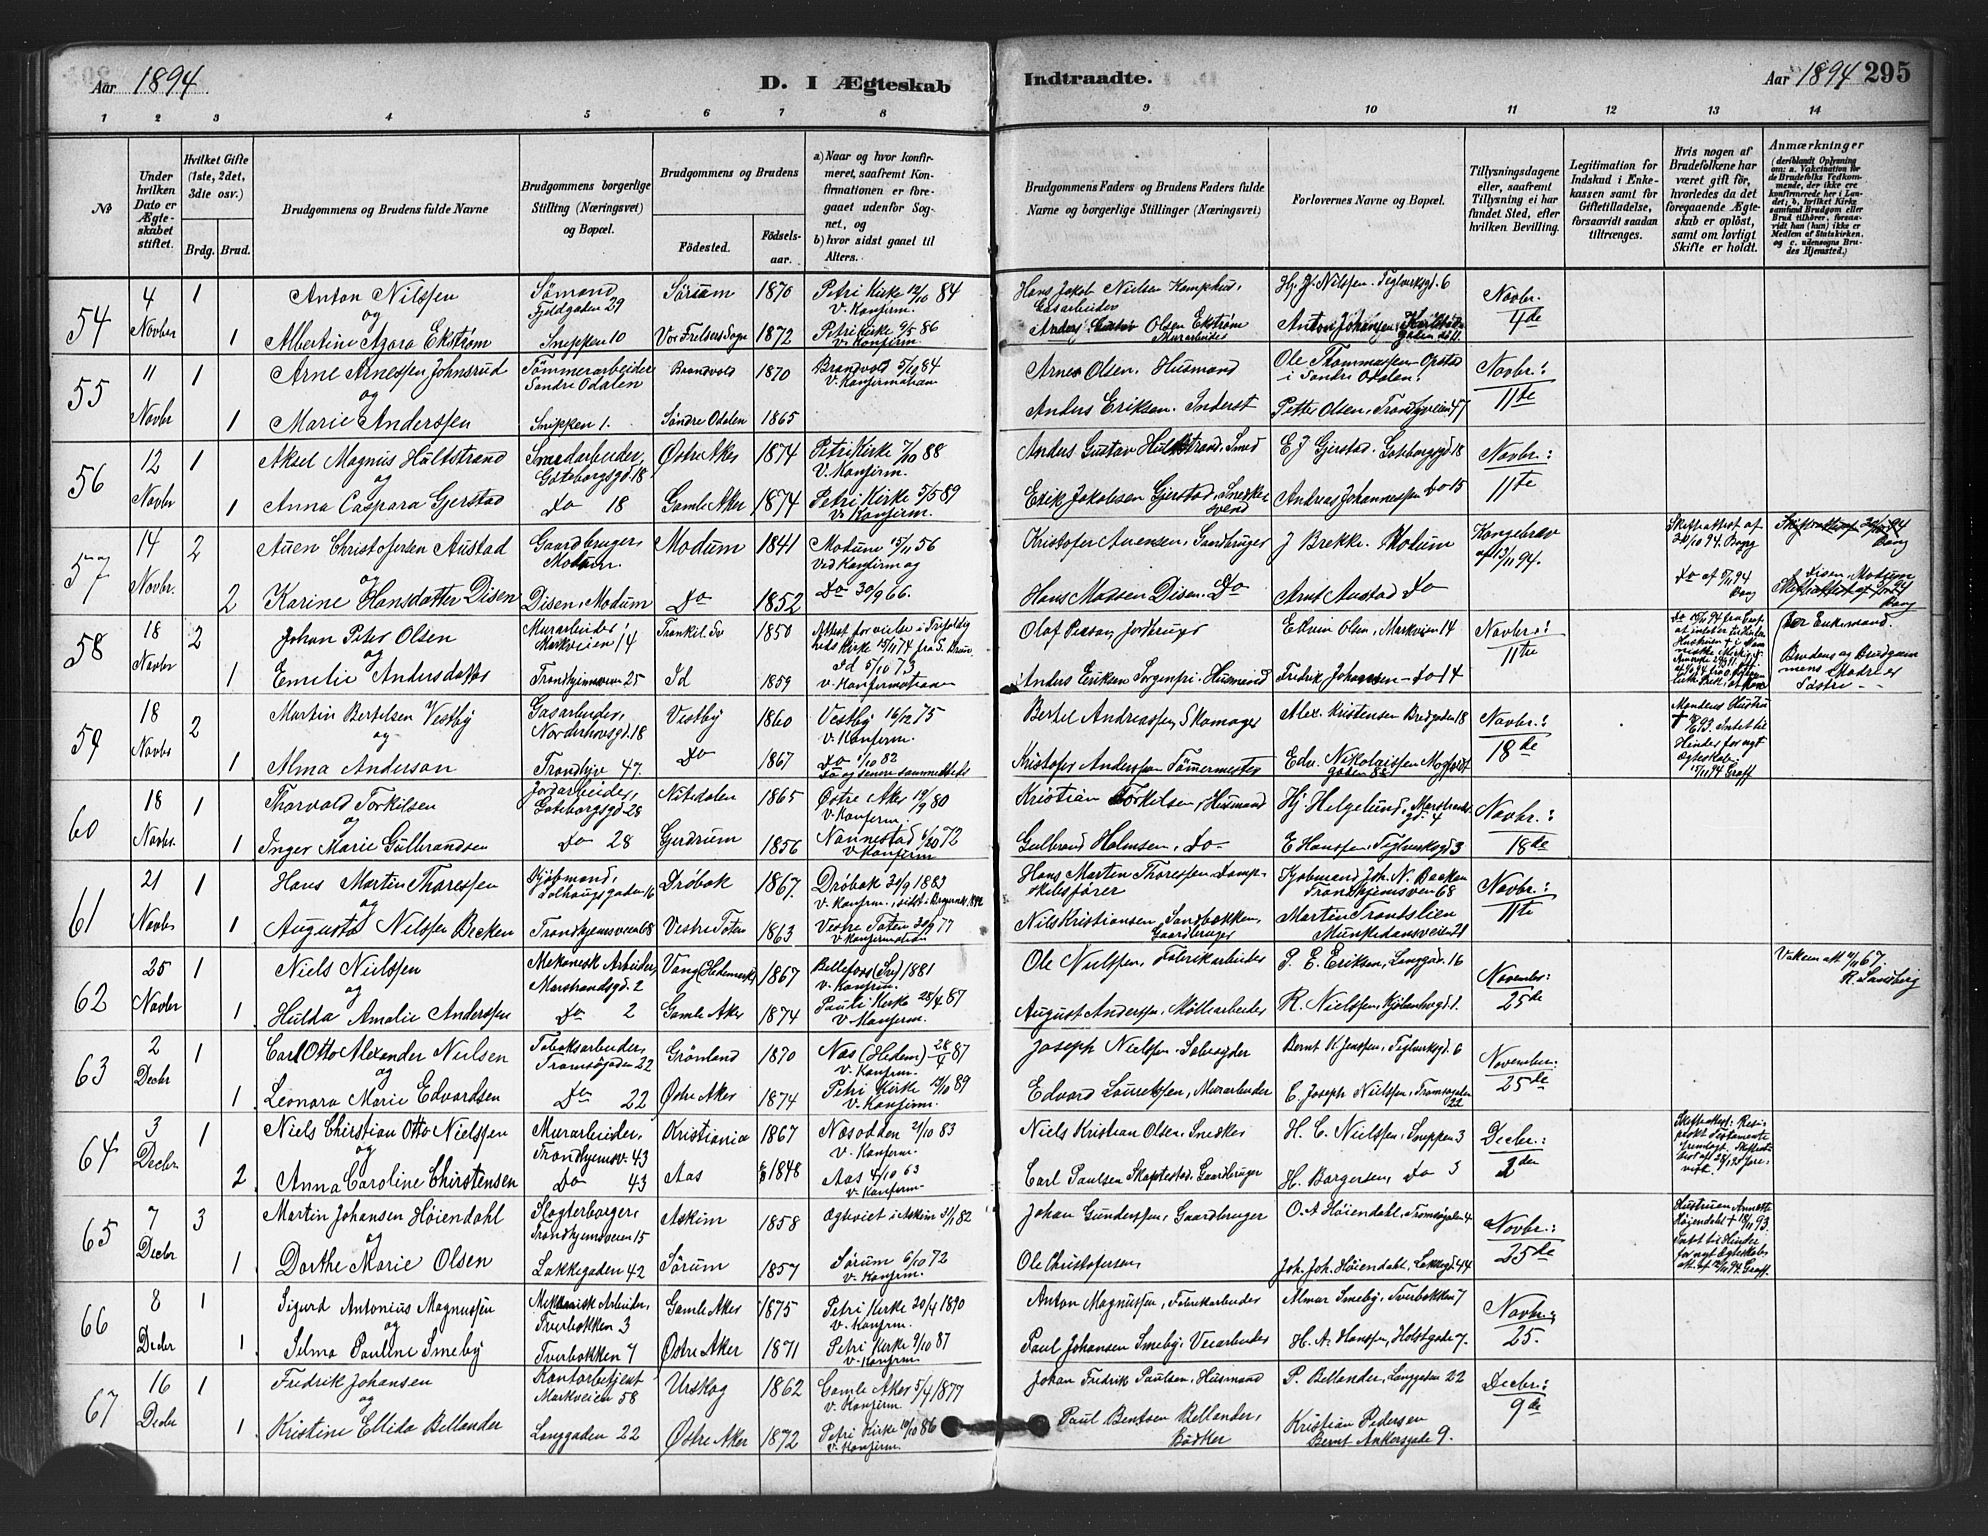 Aar 1894.
D. I Ægteskab
Indtraadte.
Aar 1894 295
1 2 3 4 5 6 7 8 9 10 11 12 13 14
№
Under hvilken Dato er Ægteskabet stiftet.
Hvilket Gifte (1ste, 2det, 3die osv.)
Brdg. Brud.
Brudgommens og Brudens fulde Navne
Brudgommens borgerlige Stilling (Næringsvei) og Bopæl.
Brudgommens og Brudens
Fødested.
Fødselsaar.
a) Naar og hvor konfirmeret, saafremt Konfirmationen er foregaaet udenfor Sognet, og
b) hvor sidst gaaet til Alters.
Brudgommens Faders og Brudens Faders fulde Navne og borgerlige Stillinger (Næringsvei)
Forlovernes Navne og Bopæl.
Tillysningsdagene eller, saafremt Tillysning ei har fundet Sted, efter hvilken Bevilling.
Legitimation for Indskud i Enkekassen samt for Giftetilladelse, forsaavidt saadan tiltrænges.
Hvis nogen af Brudefolkene har været gift før, hvorledes da det foregaaende Ægteskab er opløst, samt om lovligt Skifte er holdt.
Anmærkninger
(deriblandt Oplysning om: a. Vakcination for de Brudefolks Vedkommende, der ikke ere konfirmerede her i Landet; b. hvilket Kirkesamfund Brudgom eller Brud tilhører, forsaavidt han (hun) ikke er Medlem af Statskirken, og c. udensogns Brudes Hjemsted.)
54 4 Novbr 1 Anton Nilssen Sømand, Fjeldgaden 29 Sørum 1870 Petri Kirke 12/10 84 v. Konfirm. Hans Jakob Nielsen Kamphus, Gasarbeider Hj. J. Nilssen. Teglverksgd. 6 Novbr. 4de
og
1 Albertine Azora Ekstrøm Snippen 10 Vor Frelsers Sogn 1872 Petri Kirke 9/5 86 v. Konfirm. Anders Gustav Olsen Ekstrøm Murarbeider Anton Johansen,
55 11 Novbr 1 Arne Arnessen Johnsrud Tømmerarbeider Søndre Odalen Brandvold 1870 Brandvold 5/10 84 v. Konfirmation Arne Olsen. Husmand Ole Thommassen Opstad i Søndre Odalen. Novbr.: 11te
og
1 Marie Anderssen Snippen 1. Søndre Odalen 1865 Anders Eriksen. Inderst Petter Olsen, Trondhjveien 47
56 12 Novbr 1 Aksel Magnus Hultstrand Smedarbeider, Gøteborgsgd. 18 Østre Aker 1874 Petri Kirke 7/10 88 v. Konfirm. Anders Gustav Hultstrand, Smed E J Gjerstad. Gøteborgsgd 18 Novbr.: 11te
og
1 Anna Caspara Gjerstad Do 18 Gamle Aker 1874 Petri Kirke 5/5 89 v. Konfirm. Erik Jakobsen Gjerstad, Snedkersvend Andreas Johannessen Do 15
57 14 Novbr. 2 Auen Christofersen Austad Gaardbruger, Modum. Modum 1841 Modum 15/11 56 Ved Konfirm og Kristofer Auensen, Gaardbruger J Brekke. Modum Kongebrev af 13/11 94. Skifteattest af 20/10 94. Bang
og
2 Karine Hansdatter Disen Disen, Modum Do 1852 Do 30/9 66. Hans Madsen Disen. Do Arnt Austad Do Do af 5/11 94 Bang Disen, Modum
58 18 Novbr 2 Johan Peter Olsen Murarbeider, Markveien 14 Trankil Sv 1850 Attest for vielse i Trefoldigheds Kirke 15/11 74 Olaf Persson, Jordbruger Edvin Olsen, Markveien 14 Novbr.: 11te Er Enkemand.
og
1 Emilie Andersdatter Trondhjemsveien 25 Id 1859 Id 5/10 73 v. Konfirmationen Anders Eriksen Sorgenfri. Husmand Fredrik Johansen - Do 14 Brudens og Brudgommens Mødre er Søstre - -
59 18 Novbr 2 Martin Bertelsen Vestby Gasarbeider, Norderhovsgd. 18 Vestby 1860 Vestby 16/12 75 v. Konfirm. Bertel Andreassen, Skomager Alex. Kristensen Bredgaden 18 Novbr.: 18de Mandens Hustru + 93. Intet til Hinder for nyt Ægteskab. 15/11 94 Graff
og
1 Alma Anderson Trondhjv 47. Do 1867 Do 1/10 82 Do og senere sammesteds Kristofer Anderssen Tømmermester Edv. Nikolaissen
60 18 Novbr. 1 Thorvald Torkilsen Jordarbeider, Gøteborgsgd 28 Nitedalen 1865 Østre Aker 19/9 80 v. Konfirm. Kristian Torkilsen, Husmand Hj. Helgelund, Marstrandsgd. 4 Novbr.: 18de
og
1 Inger Marie Gulbrandsen Do 28 Gjerdrum 1856 Nannestad 6/10 72 v Konfirm Gulbrand Holmsen. Do E Hanssen, Teglverksgd 3
61 21 Novbr 1 Hans Martin Thoressen Kjøbmand, Tolhaugsgaden 16 Drøbak 1867. Drøbak 30/9 1883 v. Konfirm., Hans Martin Thoressen. Dampskibsfører Kjøbmand Joh. N. Becken Trondhjemsveien 68 Novbr.: 11te
og
1 Augusta Nilssen Becken Trondhjemsveien 68 Vestre Toten 1863 Vestre Toten 30/9 77 v. Konfirmation Nils Kristiansen Sandbakken, Gaardbruger Martin Trontslien Munkedamsveien 21
62 25 Novbr 1 Niels Nielssen Mekanisk Arbeider, Marstrandsgd. 2 Vang (Hedemark) 1867 Bellefors (Sv.) 1881 v. Konfirm. Ole Nielssen, Fabrikarbeider P. E. Eriksen, Langgd. 16 Novembr: 25de Vakcin att 11/11 67. R. Sandberg
og
1 Hulda Amalie Anderssen Do 2 Gamle Aker 1874 Pauli Kirke 28/4 87 v. Konfirm. August Anderssen, Møllearbeider R. Nielssen, Kjøbenhvgd. 1.
63 2 Decbr 1 Carl Otto Alexander Nielsen Tobaksarbeider, Tromsøgaden 22 Grønland 1870 Næs (Hedem) 28/4 87 v. Konfirm. Joseph Nielssen, Selveyder Bernt K. Jenssen, Teglverksgd. 6 November: 25de
og
1 Leonora Marie Edvardsen Do 22 Østre Aker 1874 Petri Kirke 13/10 89 v. Konfirm. Edvard Lauretssen, Murarbeider C. Joseph Nielssen, Tromsøgaden 22
64 3 Decbr. 1 Niels Christian Otto Nielssen Murarbeider, Trondhjemsv. 43 Kristiania 1867 Næsodden 21/10 83 v. Konfirm. Niels Kristian Olsen, Snedker H. C. Nielssen, Snippen 3 Decbr.: 2den
og
2 Anna Caroline Christensen Do 43 Aas 1848 Aas 4/10 63 v. Konfirm Carl Paulsen Skaptestad, Gaardbruger H. Borgersen, Do 3
65 7 Decbr 3 Martin Johansen Høiendahl Slagterborger, Trondhjemsveien 15 Askim 1858 Ægteviet i Askim 31/1 82 Johan Gunderssen, Gaardbruger O. A Høiendahl, Tromsøgaden 4 Novbr.: 25de Hustruen Annette Høiendahl + 18/11 93. Intet til Hinder for nyt Ægteskab att. af 12/11 94. Graff.
og
1 Dorthe Marie Olsen Lakkegaden 42 Sørum 1857 Sørum 6/10 72 v. Konfirm. Ole Christofersen, Joh. Joh. Høiendahl, Lakkegd. 44
66 8 Decbr 1 Sigurd Antonius Magnussen Mekanisk Arbeider, Tverbakken 3 Gamle Aker 1875 Petri Kirke 20/4 1890 v. Konfirm. Anton Magnussen, Fabrikarbeider Almar Smeby, Tverbakken 7 Novbr. 25.
og
1 Selma Pauline Smeby Tverbakken 7 Østre Aker 1871 Petri Kirke 9/10 87 v. Konfirm. Paul Johansen Smeby, Veiarbeider H. A. Hanssen, Holstgade 7.
67 16 Decbr 1 Fredrik Johansen Kontorbetjent Markveien 58 Urskog 1862 Gamle Aker 5/4 1877 v. Konfirm. Johan Fredrik Paulsen, Husmand P. Bellander, Langgaden 22 Decbr.: 9de
og
1 Kristine Ellida Bellander Langgaden 22 Østre Aker 1872 Petri Kirke 10/10 86 v. Konfirm. Paul Bentsen Bellander, Bødker Kristian Pedersen Bernt Ankersgade 9.